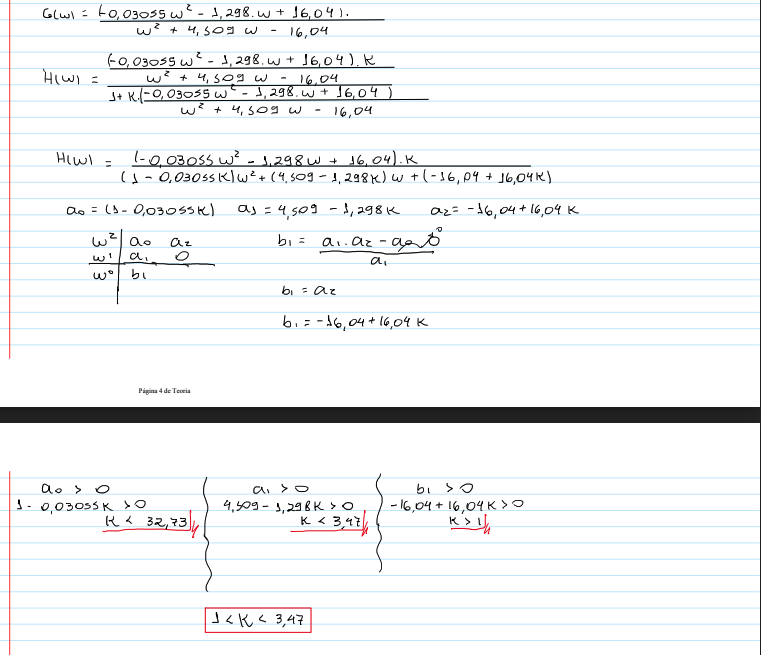 G(w) = (-0,03055w² - 1,298.w + 16,04).
w² + 4,509 w - 16,04
(-0,03055w² - 1,298.w + 16,04).K
H(w) = w² + 4,509 w - 16,04
1+ K.(-0,03055w² - 1,298.w + 16,04)
w² + 4,509 w - 16,04
H(w) = (-0,03055w² - 1,298w + 16,04).K
(1 - 0,03055K)w² + (4,509 - 1,298K)w + (-16,04 + 16,04K)
a₀ = (1 - 0,03055K) a₁ = 4,509 - 1,298K a₂ = -16,04 + 16,04 K
w² a₀ a₂ b₁ = a₁.a₂ - a₀.0 0
w¹ a₁ 0 a₁
w⁰ b₁
b₁ = a₂
b₁ = -16,04 + 16,04 K
Página 4 de Teoria
a₀ > 0 a₁ > 0 b₁ > 0
1 - 0,03055K > 0 4,509 - 1,298K > 0 -16,04 + 16,04K > 0
K < 32,73 K < 3,47 K > 1
1 < K < 3,47